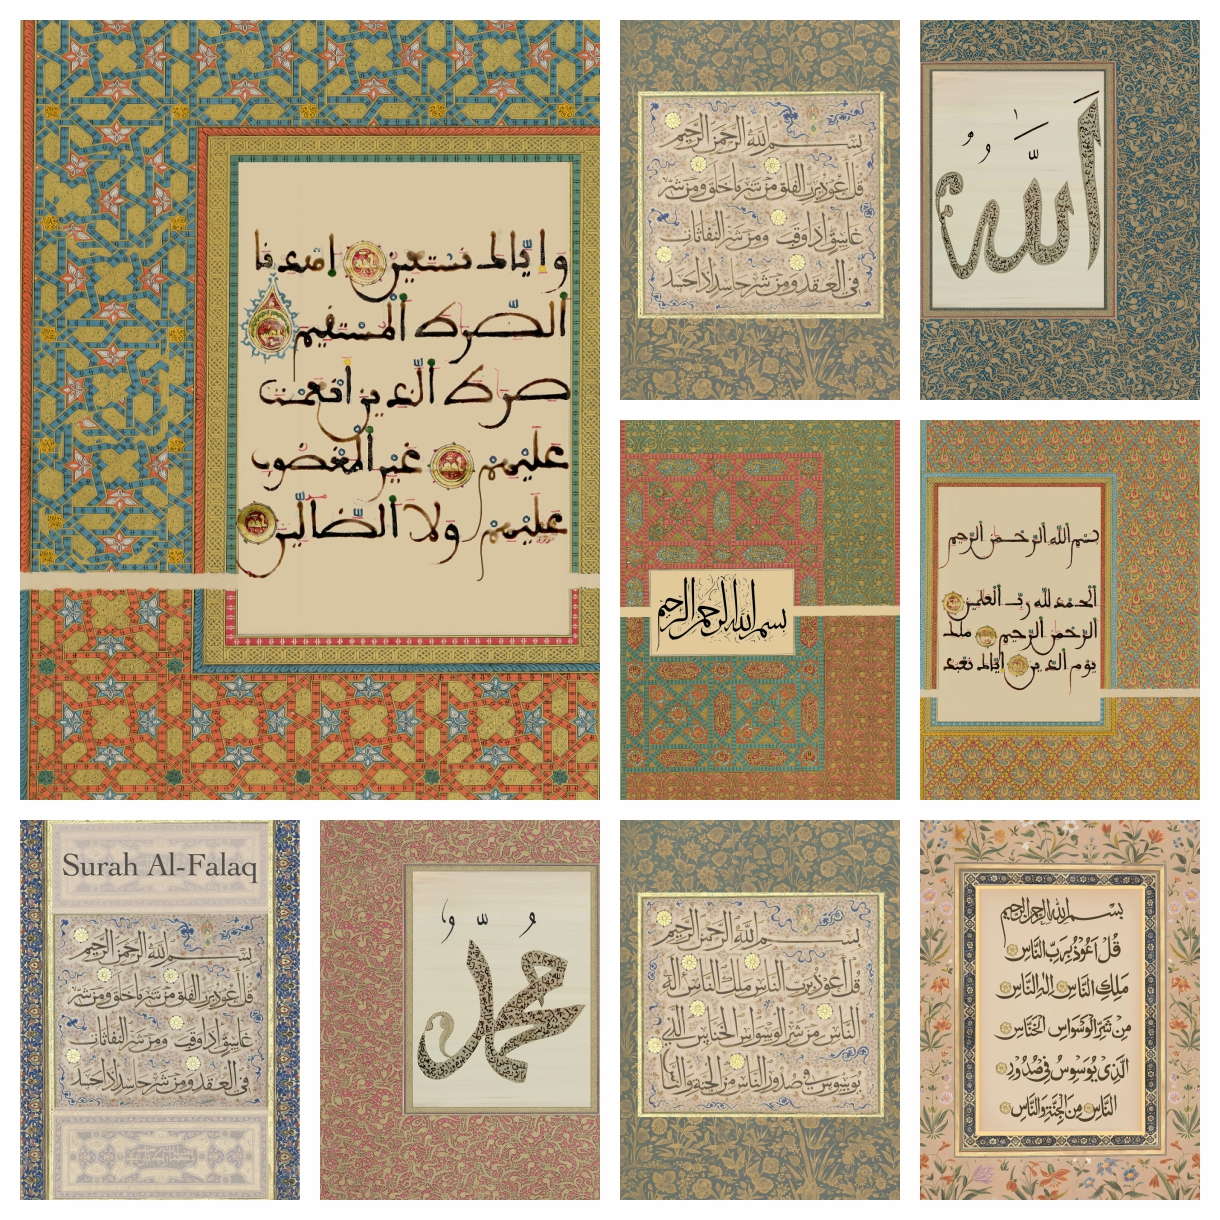 وإياك نستعين اهدنا
الصرط المستقيم
صرط الذين أنعمت
عليهم غير المغضوب
عليهم ولا الضالين
بسم الله الرحمن الرحيم
قل أعوذ برب الفلق من شر ما خلق ومن شر
غاسق إذا وقب ومن شر النفاثات
في العقد ومن شر حاسد إذا حسد
الله
بسم الله الرحمن الرحيم
بسم الله الرحمن الرحيم
الحمد لله رب العلمين
الرحمن الرحيم ملك
يوم الدين إياك نعبد
Surah Al-Falaq
بسم الله الرحمن الرحيم
قل أعوذ برب الفلق من شر ما خلق ومن شر
غاسق إذا وقب ومن شر النفاثات
في العقد ومن شر حاسد إذا حسد
محمد
بسم الله الرحمن الرحيم
قل أعوذ برب الناس ملك الناس إله
الناس من شر الوسواس الخناس الذي
يوسوس في صدور الناس من الجنة والناس
بسم الله الرحمن الرحيم
قُلْ أَعُوذُ بِرَبِّ النَّاسِ
مَلِكِ النَّاسِ إِلٰهِ النَّاسِ
مِنْ شَرِّ الْوَسْوَاسِ الْخَنَّاسِ
الَّذِي يُوَسْوِسُ فِي صُدُورِ
النَّاسِ مِنَ الْجِنَّةِ وَالنَّاسِ